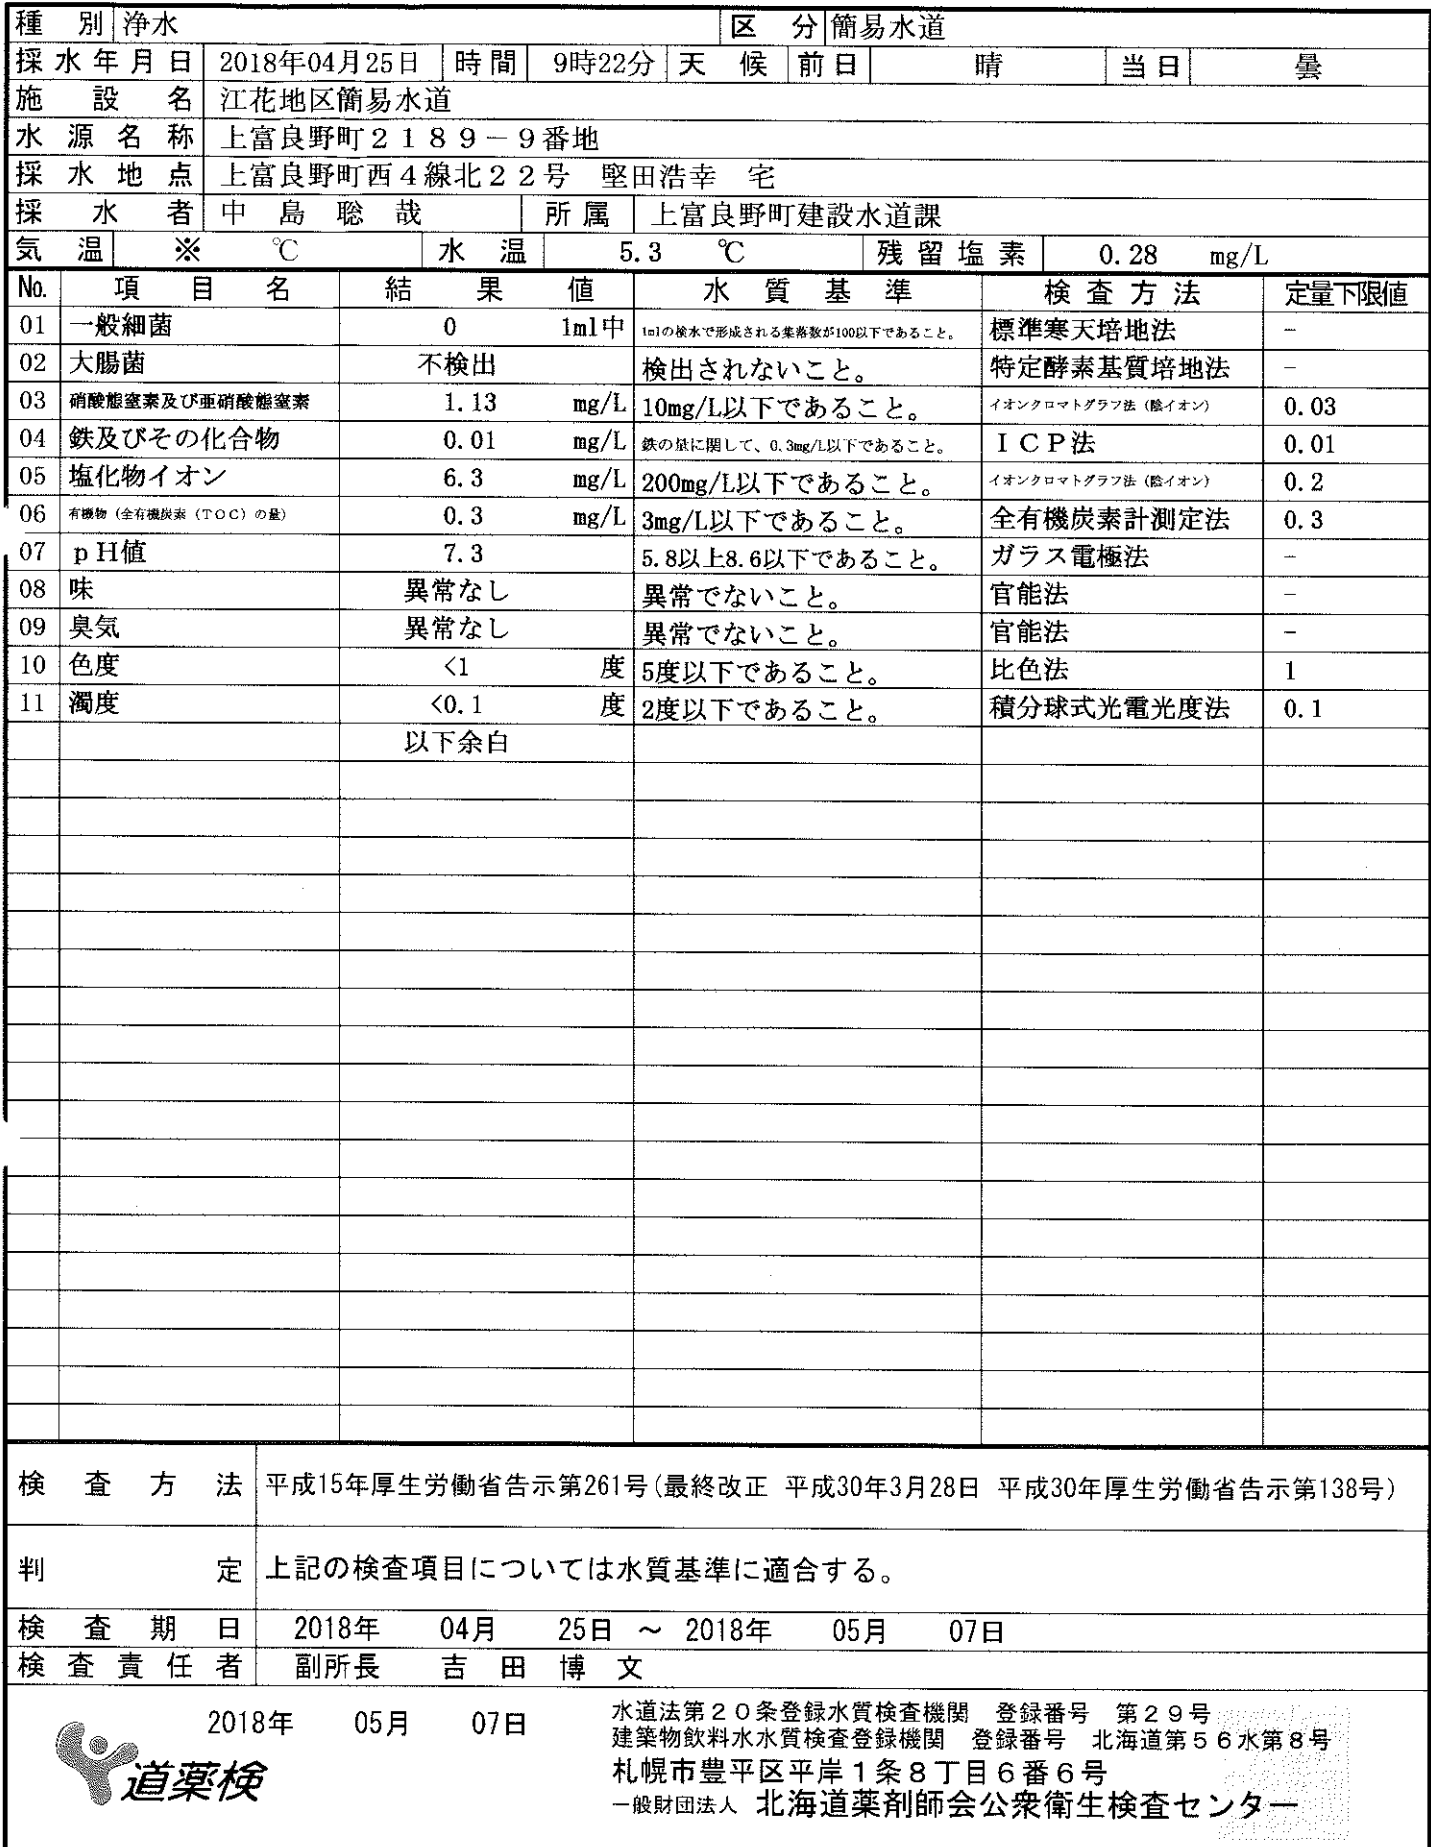 種 別 浄水 区 分 簡易水道
採水年月日 2018年04月25日 時間 9時22分 天 候 前日 晴 当日 曇
施 設 名 江花地区簡易水道
水 源 名 称 上富良野町2189-9番地
採 水 地 点 上富良野町西4線北22号 堅田浩幸 宅
採 水 者 中 島 聡 哉 所属 上富良野町建設水道課
気 温 ※ ℃ 水 温 5.3 ℃ 残留塩素 0.28 mg/L
No. 項 目 名 結 果 値 水 質 基 準 検査方法 定量下限値
01 一般細菌 0 1ml中 1mlの検水で形成される集落数が100以下であること。 標準寒天培地法 －
02 大腸菌 不検出 検出されないこと。 特定酵素基質培地法 －
03 硝酸態窒素及び亜硝酸態窒素 1.13 mg/L 10mg/L以下であること。 イオンクロマトグラフ法（陰イオン） 0.03
04 鉄及びその化合物 0.01 mg/L 鉄の量に関して、0.3mg/L以下であること。 ＩＣＰ法 0.01
05 塩化物イオン 6.3 mg/L 200mg/L以下であること。 イオンクロマトグラフ法（陰イオン） 0.2
06 有機物（全有機炭素（ＴＯＣ）の量） 0.3 mg/L 3mg/L以下であること。 全有機炭素計測定法 0.3
07 ｐＨ値 7.3 5.8以上8.6以下であること。 ガラス電極法 －
08 味 異常なし 異常でないこと。 官能法 －
09 臭気 異常なし 異常でないこと。 官能法 －
10 色度 <1 度 5度以下であること。 比色法 1
11 濁度 <0.1 度 2度以下であること。 積分球式光電光度法 0.1
以下余白
検 査 方 法 平成15年厚生労働省告示第261号(最終改正 平成30年3月28日 平成30年厚生労働省告示第138号)
判 定 上記の検査項目については水質基準に適合する。
検 査 期 日 2018年 04月 25日 ～ 2018年 05月 07日
検査責任者 副所長 吉 田 博 文
2018年 05月 07日
道薬検
水道法第２０条登録水質検査機関 登録番号 第２９号
建築物飲料水水質検査登録機関 登録番号 北海道第５６水第８号
札幌市豊平区平岸１条８丁目６番６号
一般財団法人 北海道薬剤師会公衆衛生検査センター